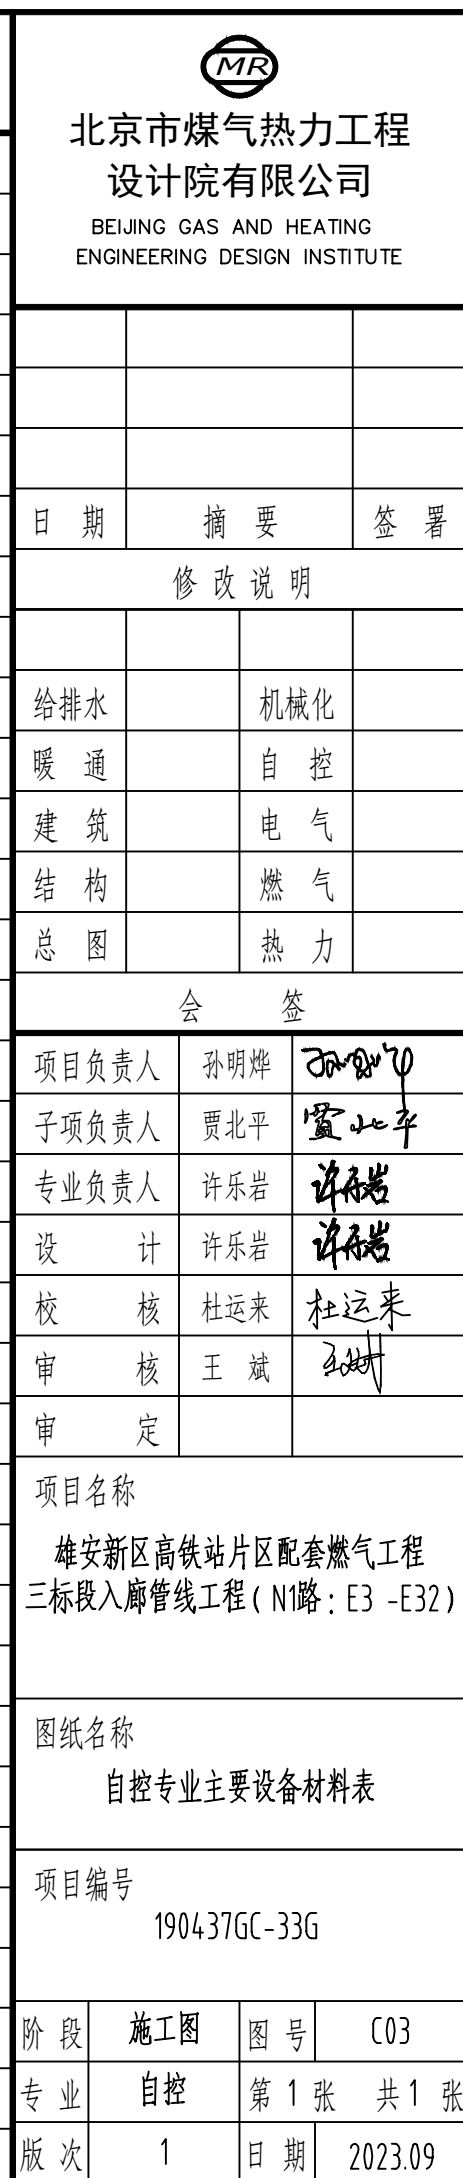 MR
北京市煤气热力工程
设计院有限公司
BEIJING GAS AND HEATING
ENGINEERING DESIGN INSTITUTE
日期 摘要 签署
修改说明
给排水 机械化
暖通 自控
建筑 电气
结构 燃气
总图 热力
会签
项目负责人 孙明烨
子项负责人 贾北平 賈北平
专业负责人 许乐岩 许乐岩
设计 许乐岩 许乐岩
校核 杜运来 杜运来
审核 王斌
审定
项目名称
雄安新区高铁站片区配套燃气工程
三标段入廊管线工程(N1路:E3-E32)
图纸名称
自控专业主要设备材料表
项目编号
190437GC-33G
阶段 施工图 图号 C03
专业 自控 第1张 共1张
版次 1 日期 2023.09